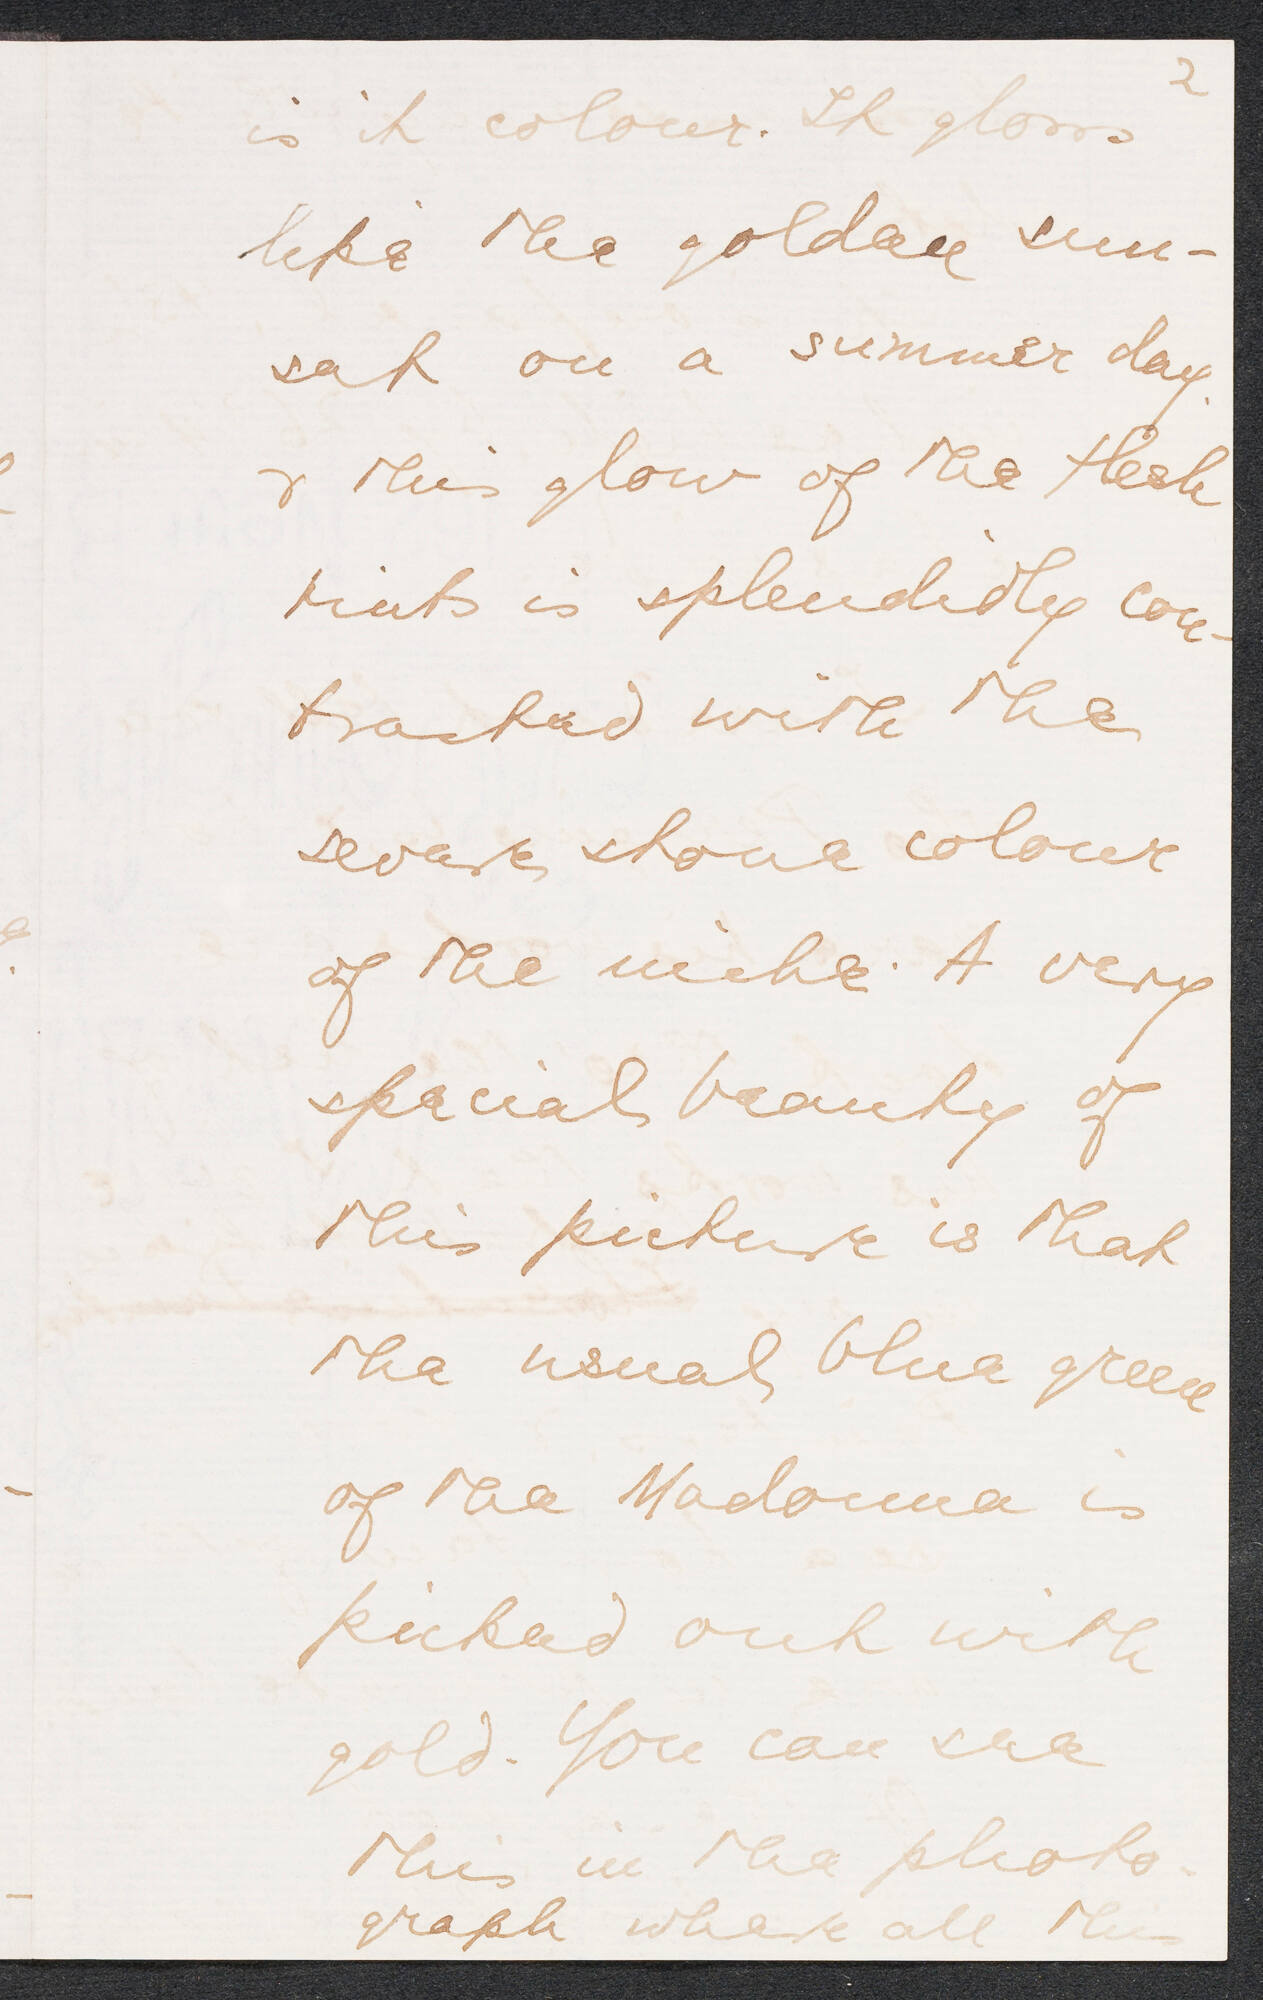 2
is it colour. It glows
like the golden sun-
set on a summer day.
& this glow of the flesh
tints is splendidly con-
trasted with the
severe stone colour
of the niche. A very
special beauty of
this picture is that
the usual blue green
of the Madonna is
picked out with
gold. You can see
this in the photo-
graph where all this